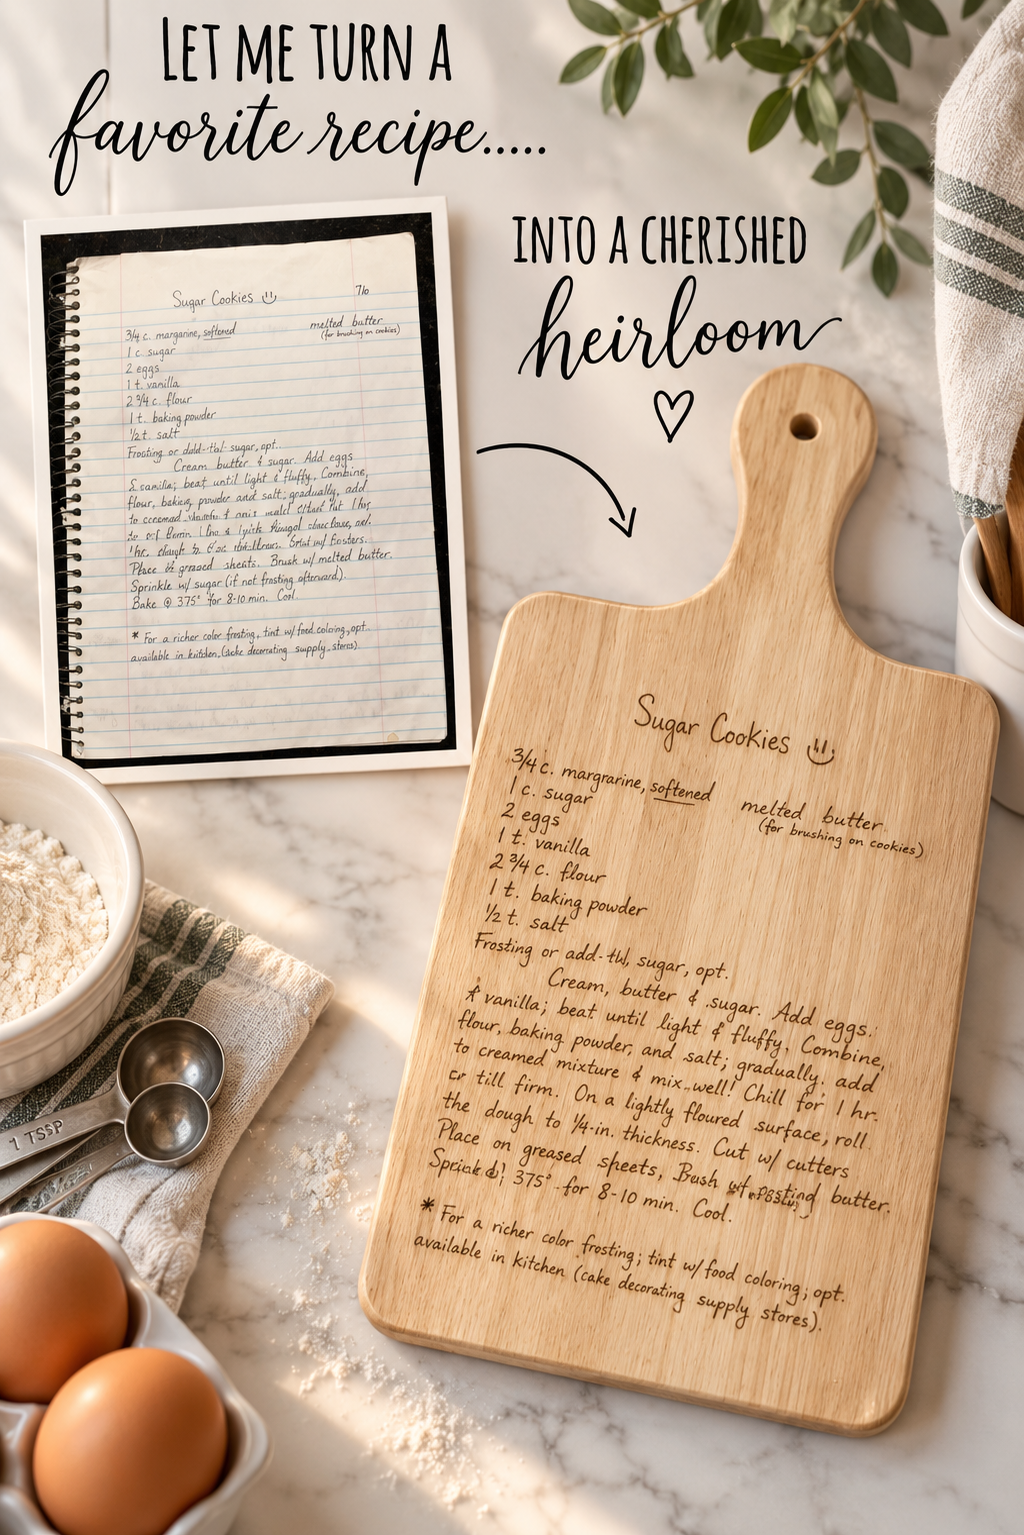 LET ME TURN A
favorite recipe.....
INTO A CHERISHED
heirloom
Sugar Cookies
7/0
3/4 c. margarine, softened
melted butter
(for brushing on cookies)
1 c. sugar
2 eggs
1 t. vanilla
2 3/4 c. flour
1 t. baking powder
1/2 t. salt
Frosting or sugar, opt.
Cream butter & sugar. Add eggs
& vanilla; beat until light & fluffy. Combine,
flour, baking powder and salt; gradually, add
to
Place greased sheets. Brush w/ melted butter.
Sprinkle w/ sugar (if not frosting afterward).
Bake @ 375° for 8-10 min. Cool.
* For a richer color frosting, tint w/ food coloring, opt.
available in kitchen, (cake decorating supply stores).
Sugar Cookies
3/4 c. margrarine, softened
melted butter
(for brushing on cookies)
1 c. sugar
2 eggs
1 t. vanilla
2 3/4 c. flour
1 t. baking powder
1/2 t. salt
Frosting or add- sugar, opt.
Cream, butter & sugar. Add eggs.
& vanilla; beat until light & fluffy. Combine,
flour, baking powder, and salt; gradually. add
to creamed mixture & mix well! Chill for 1 hr.
or till firm. On a lightly floured surface, roll
the dough to 1/4-in. thickness. Cut w/ cutters
Place on greased sheets, Brush butter.
375° for 8-10 min. Cool.
* For a richer color frosting; tint w/ food coloring; opt.
available in kitchen (cake decorating supply stores).
1 TSSP